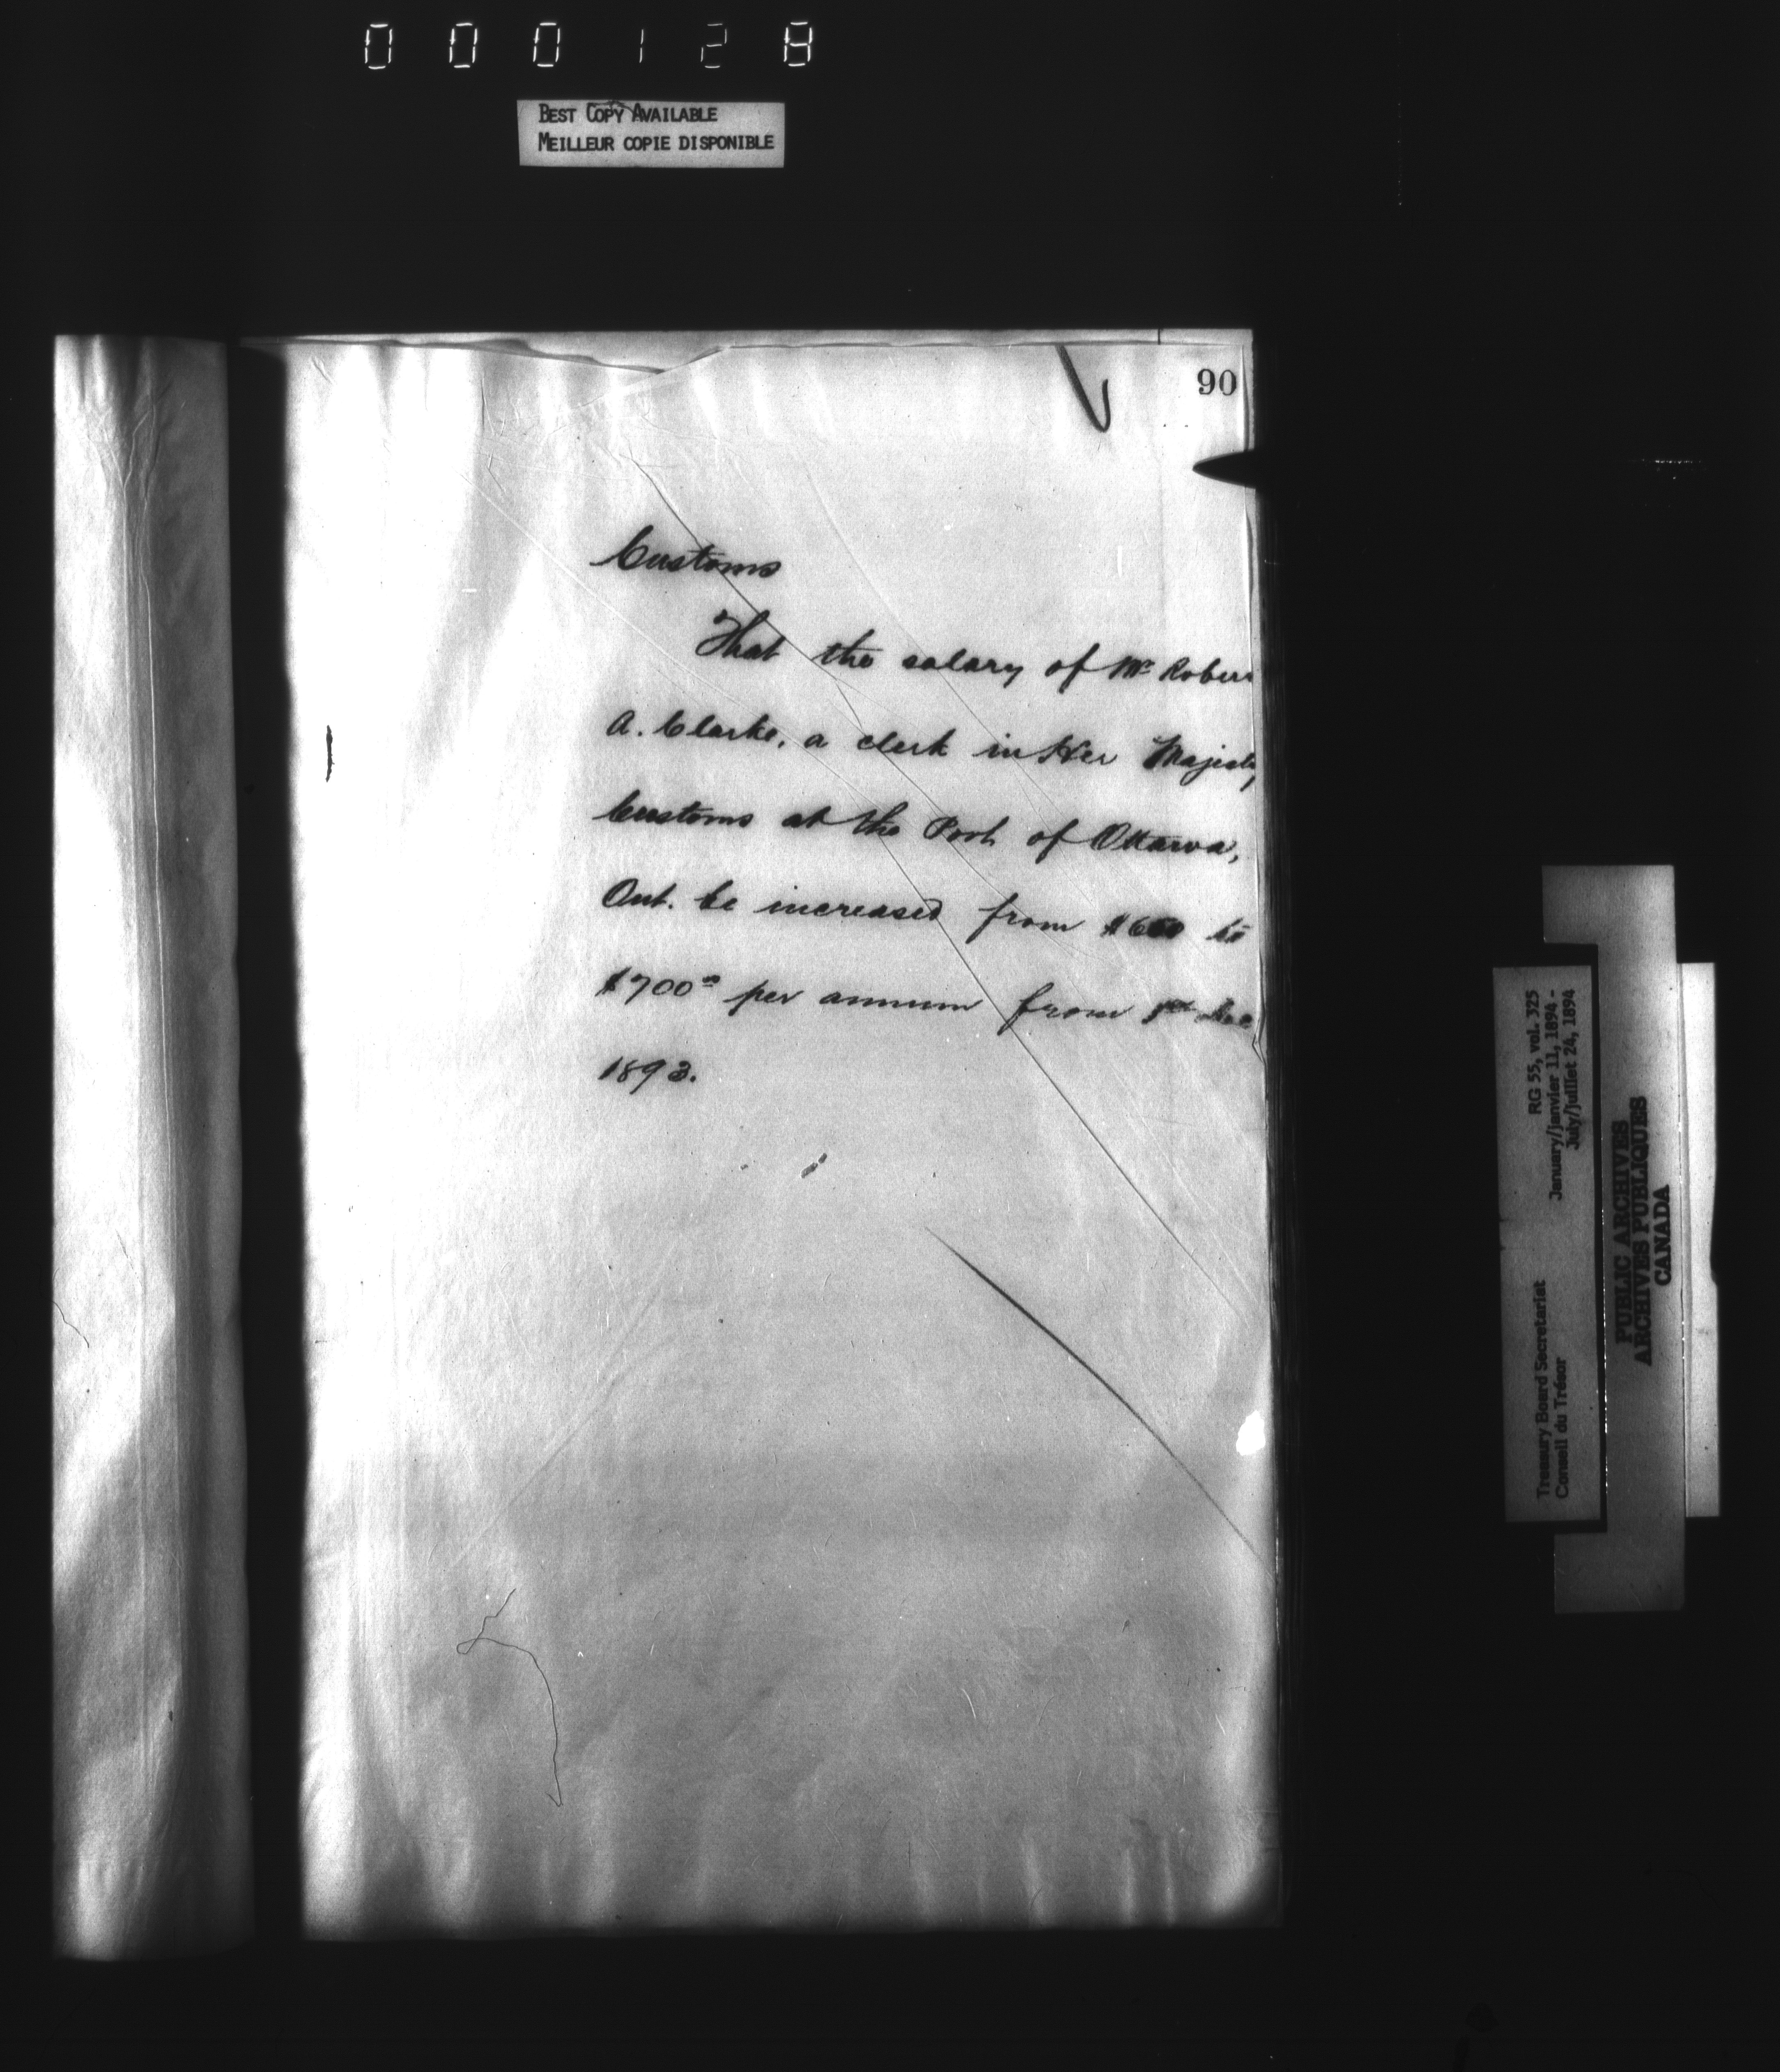 000128
BEST COPY AVAILABLE
MEILLEUR COPIE DISPONIBLE
90
Customs
That the salary of Mr Rober
A. Clarke, a clerk in Her Majesty
Customs at the Port of Ottawa,
Ont. be increased from to
$700 per annum from 1st Dec
1893.
RG 55, vol. 325
January/janvier 11, 1894 -
July/juillet 24, 1894
Treasury Board Secretariat
Conseil du Trésor
PUBLIC ARCHIVES
ARCHIVES PUBLIQUES
CANADA